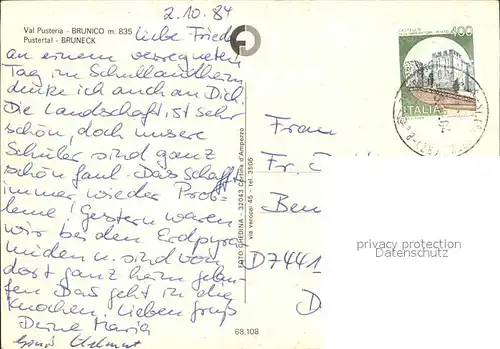 2.10.84
Val Pusteria - BRUNICO m. 835
Pustertal - BRUNECK
Liebe Friede
an einem verregneten
Tag im Schullandheim
denke ich auch an Dich.
Die Landschaft ist sehr
schön, doch unsere
Schüler sind ganz
schön faul. Das schafft
immer wieder Prob-
leme! Gestern waren
wir bei den Erdpyra-
miden u. sind von
dort ganz heim gelau-
fen Das geht in die
Knochen. Lieben Gruß
Deine Maria
Helmut
FOTO GHEDINA - 32043 Cortina d'Ampezzo
via verocai 45 - tel. 3505
68.108
400
ITALIA
Frau
Fr.
Ben
D7441
D
privacy protection
Datenschutz